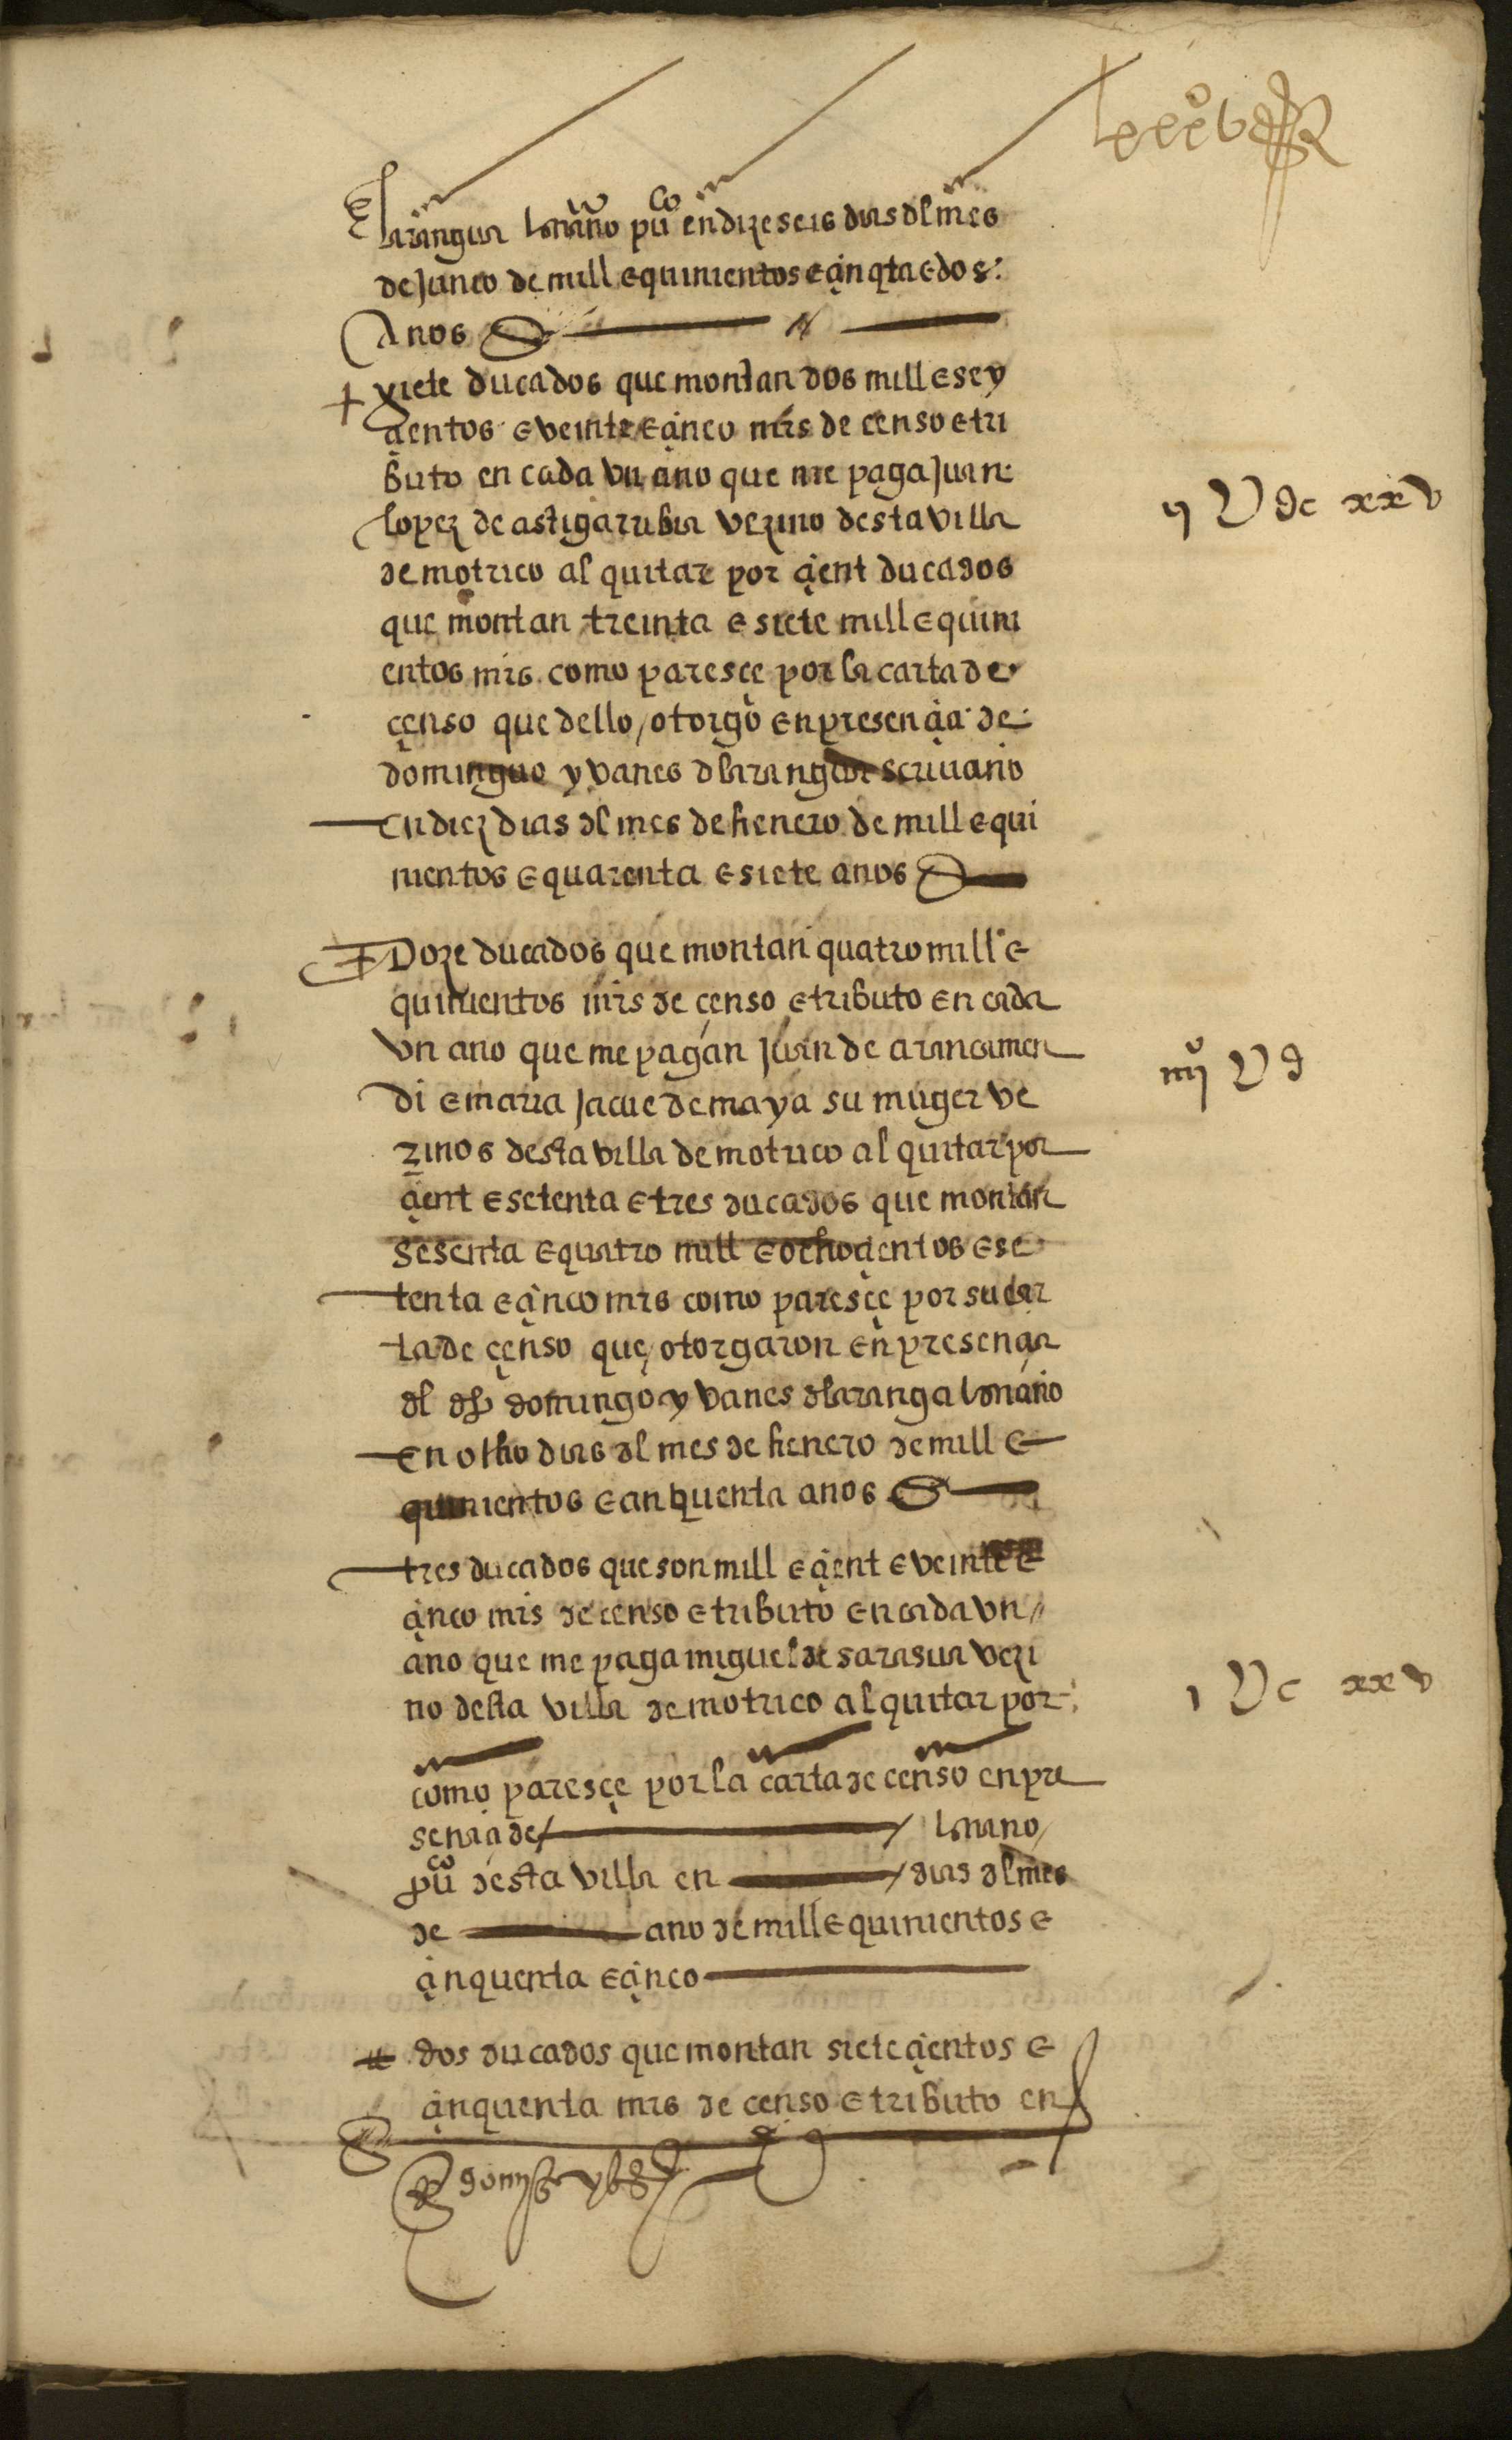 laranguia esnano puco en dize seis dias dl mes
de Junio de mill e quinientos e çinqta e dos
Años
+ siete ducados que montan dos mill e sey
çientos e veinte e çinco mrs de censo e tri
buto en cada vn año que me paga Juan
lopez de astigarribia vezino desta villa
de motrico al quitar por çient ducados
que montan treinta e siete mill e quini
entos mrs. como paresçe por la carta de
çenso que dello otorgo en presençia de
domingo yvanes d laranguia scriuano
en diez dias dl mes de henero de mill e qui
nientos e quarenta e siete anos
ij U dc xxv
Doze ducados que montan quatro mill e
quinientos mrs de çenso e tributo en cada
vn ano que me pagan Juan de arancamen
di e maria Jacue de maya su muger ve
zinos desta villa de motrico al quitar por
çient e setenta e tres ducados que montan
sesenta e quatro mill e ochoçientos e se
tenta e çinco mrs como paresçe por su car
ta de çenso que otorgaron en presençia
dl dho domingo yvanes d laranga esnano
en ocho dias dl mes de henero de mill e
quinientos e çinquenta anos
iiijº U d
tres ducados que son mill e çient e veinte e
çinco mrs de censo e tributo en cada vn
ano que me paga miguel de sarasua vezi
no desta villa de motrico al quitar por
como paresçe por la carta de censo en pre
sençia de esnano
puco desta villa en dias dl mes
de ano de mill e quinientos e
çinquenta e çinco
i U c xxv
dos ducados que montan sieteçientos e
çinquenta mrs de censo e tributo en